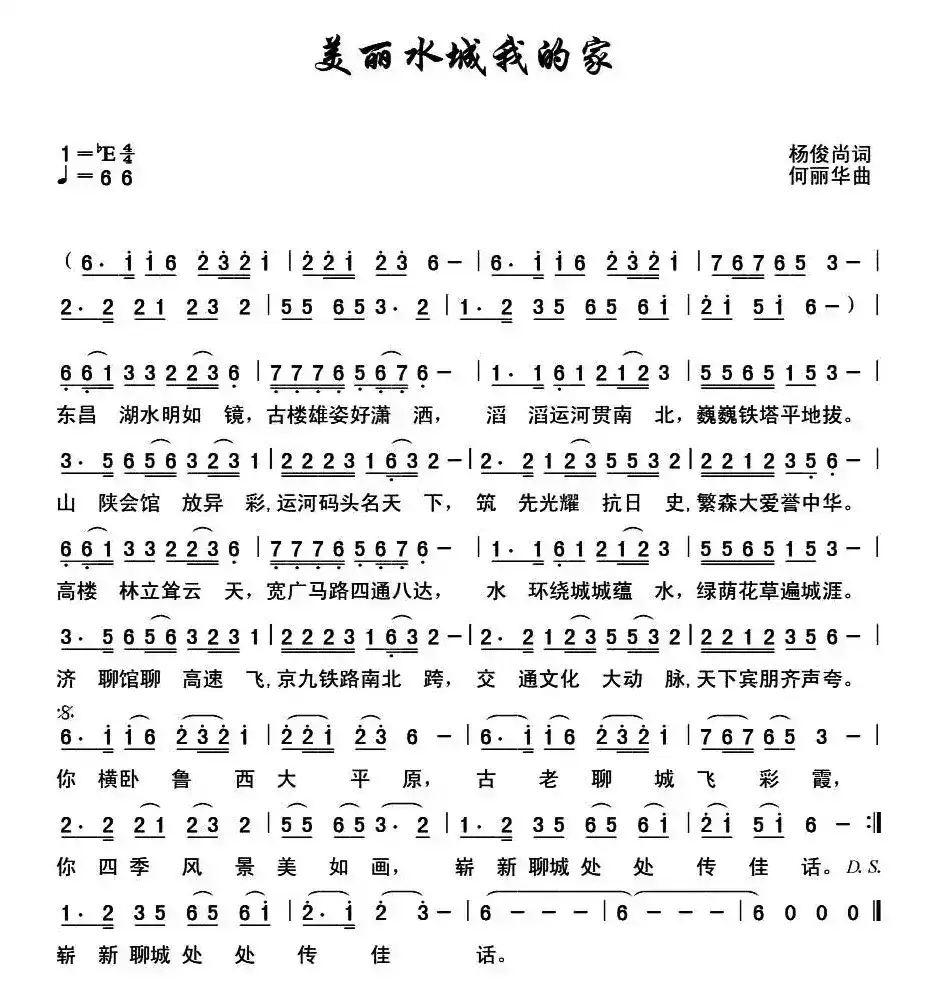 美丽水城我的家
1=♭E 4/4 杨俊尚词
♩=66 何丽华曲
(6. i i6 2321 | 221 23 6- | 6. i i6 2321 | 76765 3- |
2. 2 21 23 2 | 55 653. 2 | 1. 2 35 65 61 | 21 51 6-) |
661332236 | 7776567 6- | 1. 1612123 | 5565153- |
东昌 湖水明如 镜,古楼雄姿好潇 洒, 滔 滔运河贯南 北,巍巍铁塔平地拔。
3. 56563231 | 2223163 2- | 2. 21235532 | 2212356- |
山 陕会馆 放异 彩,运河码头名天 下, 筑 先光耀 抗日 史,繁森大爱誉中华。
661332236 | 7776567 6- | 1. 1612123 | 5565153- |
高楼 林立耸云 天,宽广马路四通八达, 水 环绕城城蕴 水,绿荫花草遍城涯。
3. 56563231 | 2223163 2- | 2. 21235532 | 2212356- |
济 聊馆聊 高速 飞,京九铁路南北 跨, 交 通文化 大动 脉,天下宾朋齐声夸。
𝄋
6. i i6 2321 | 221 23 6 - | 6. i i6 2321 | 76765 3 - |
你 横卧 鲁 西大 平 原, 古 老 聊 城 飞 彩 霞,
2. 2 21 23 2 | 55 653. 2 | 1. 2 35 65 61 | 21 51 6 - :‖
你 四季 风 景 美 如 画, 崭 新 聊城 处 处 传 佳 话。D.S.
1. 2 35 65 61 | 2. 1 2 3- | 6 - - - | 6 - - - | 6 0 0 0 ‖
崭 新 聊城 处 处 传 佳 话。